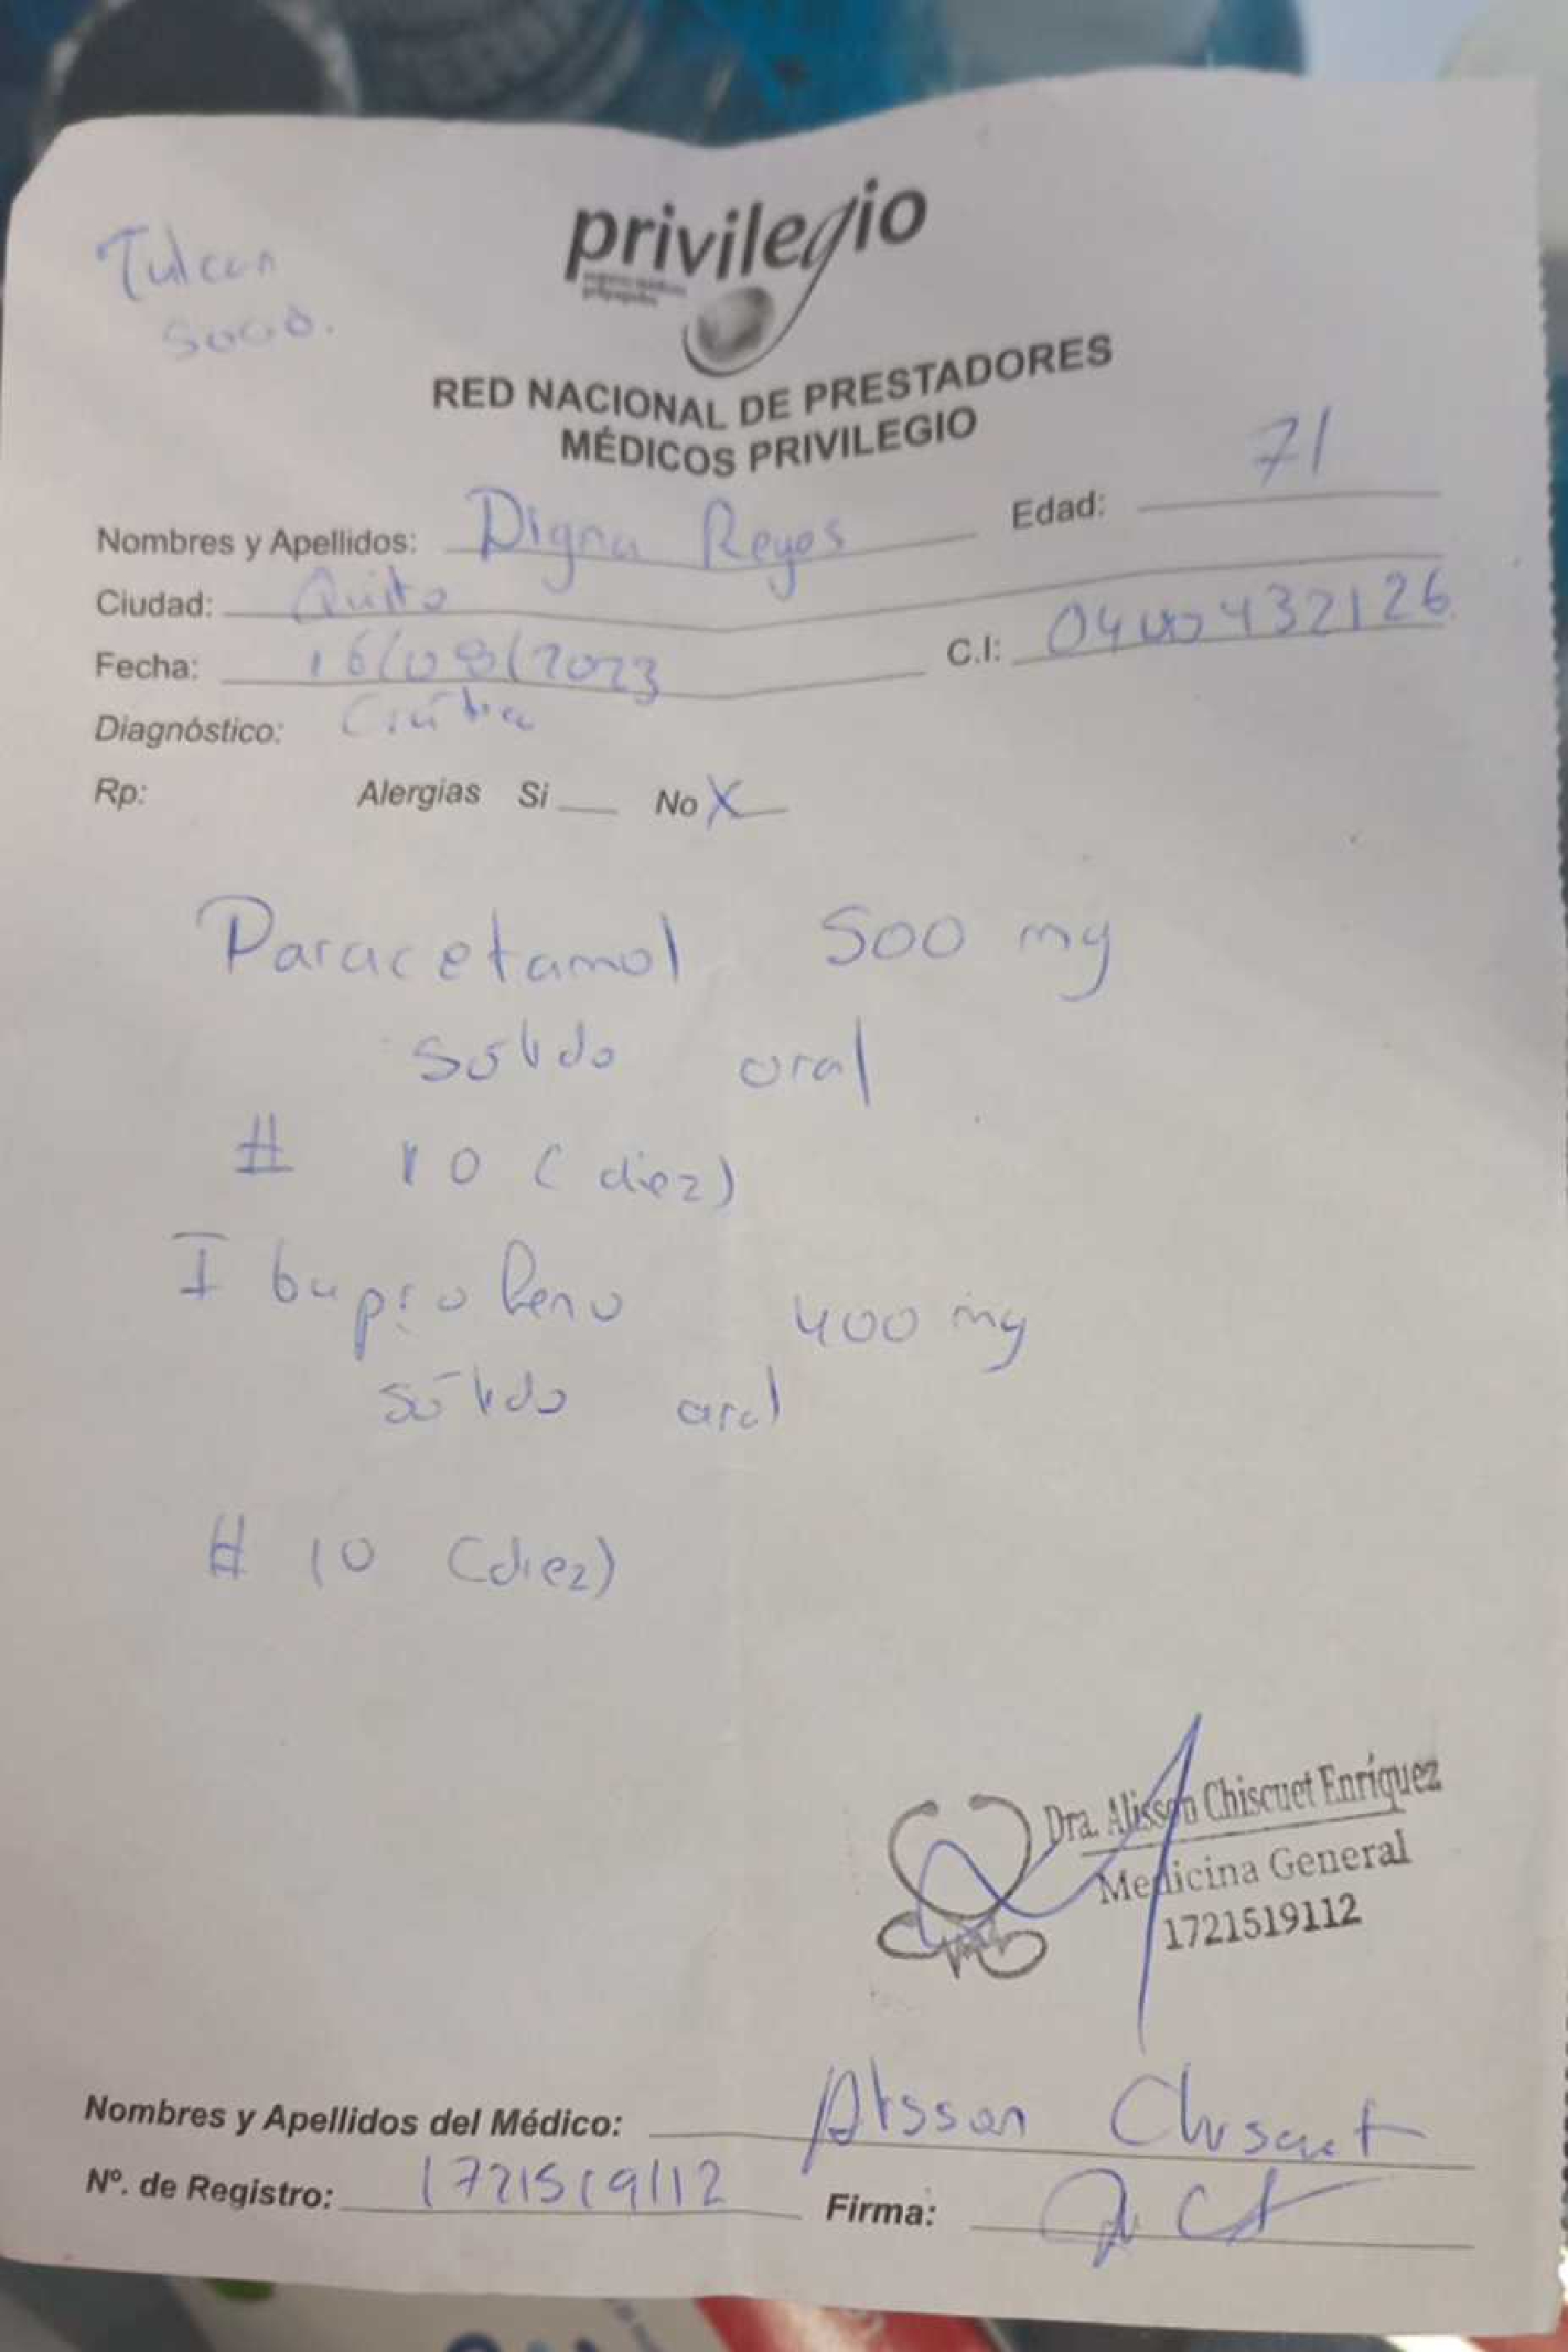 Tulcan
privilegio
RED NACIONAL DE PRESTADORES
MÉDICOS PRIVILEGIO
Nombres y Apellidos: Digna Reyes Edad: 71
Ciudad: Quito
Fecha: 16/08/2023 C.I:
Diagnóstico:
Rp: Alergias Si No X
Paracetamol 500 mg
sólido oral
# 10 (diez)
Ibuprofeno 400 mg
sólido oral
# 10 (diez)
Dra. Alisson Chiscuet Enríquez
Medicina General
1721519112
Nombres y Apellidos del Médico: Alisson Chiscuet
Nº. de Registro: 1721519112 Firma: